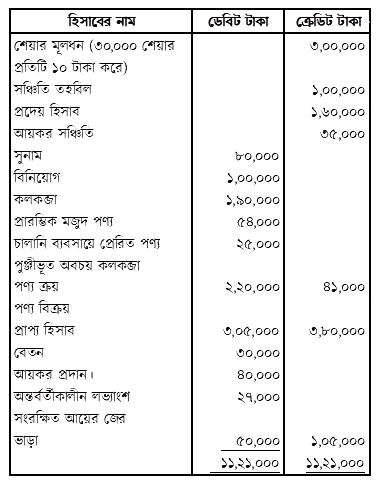 হিসাবের নাম ডেবিট টাকা ক্রেডিট টাকা
শেয়ার মূলধন (৩০,০০০ শেয়ার ৩,০০,০০০
প্রতিটি ১০ টাকা করে)
সঞ্চিতি তহবিল ১,০০,০০০
প্রদেয় হিসাব ১,৬০,০০০
আয়কর সঞ্চিতি ৩৫,০০০
সুনাম ৮০,০০০
বিনিয়োগ ১,০০,০০০
কলকব্জা ১,৯০,০০০
প্রারম্ভিক মজুদ পণ্য ৫৪,০০০
চালানি ব্যবসায়ে প্রেরিত পণ্য ২৫,০০০
পুঞ্জীভূত অবচয় কলকব্জা
পণ্য ক্রয় ২,২০,০০০ ৪১,০০০
পণ্য বিক্রয়
প্রাপ্য হিসাব ৩,০৫,০০০ ৩,৮০,০০০
বেতন ৩০,০০০
আয়কর প্রদান। ৪০,০০০
অন্তর্বর্তীকালীন লভ্যাংশ ২৭,০০০
সংরক্ষিত আয়ের জের
ভাড়া ৫০,০০০ ১,০৫,০০০
১১,২১,০০০ ১১,২১,০০০